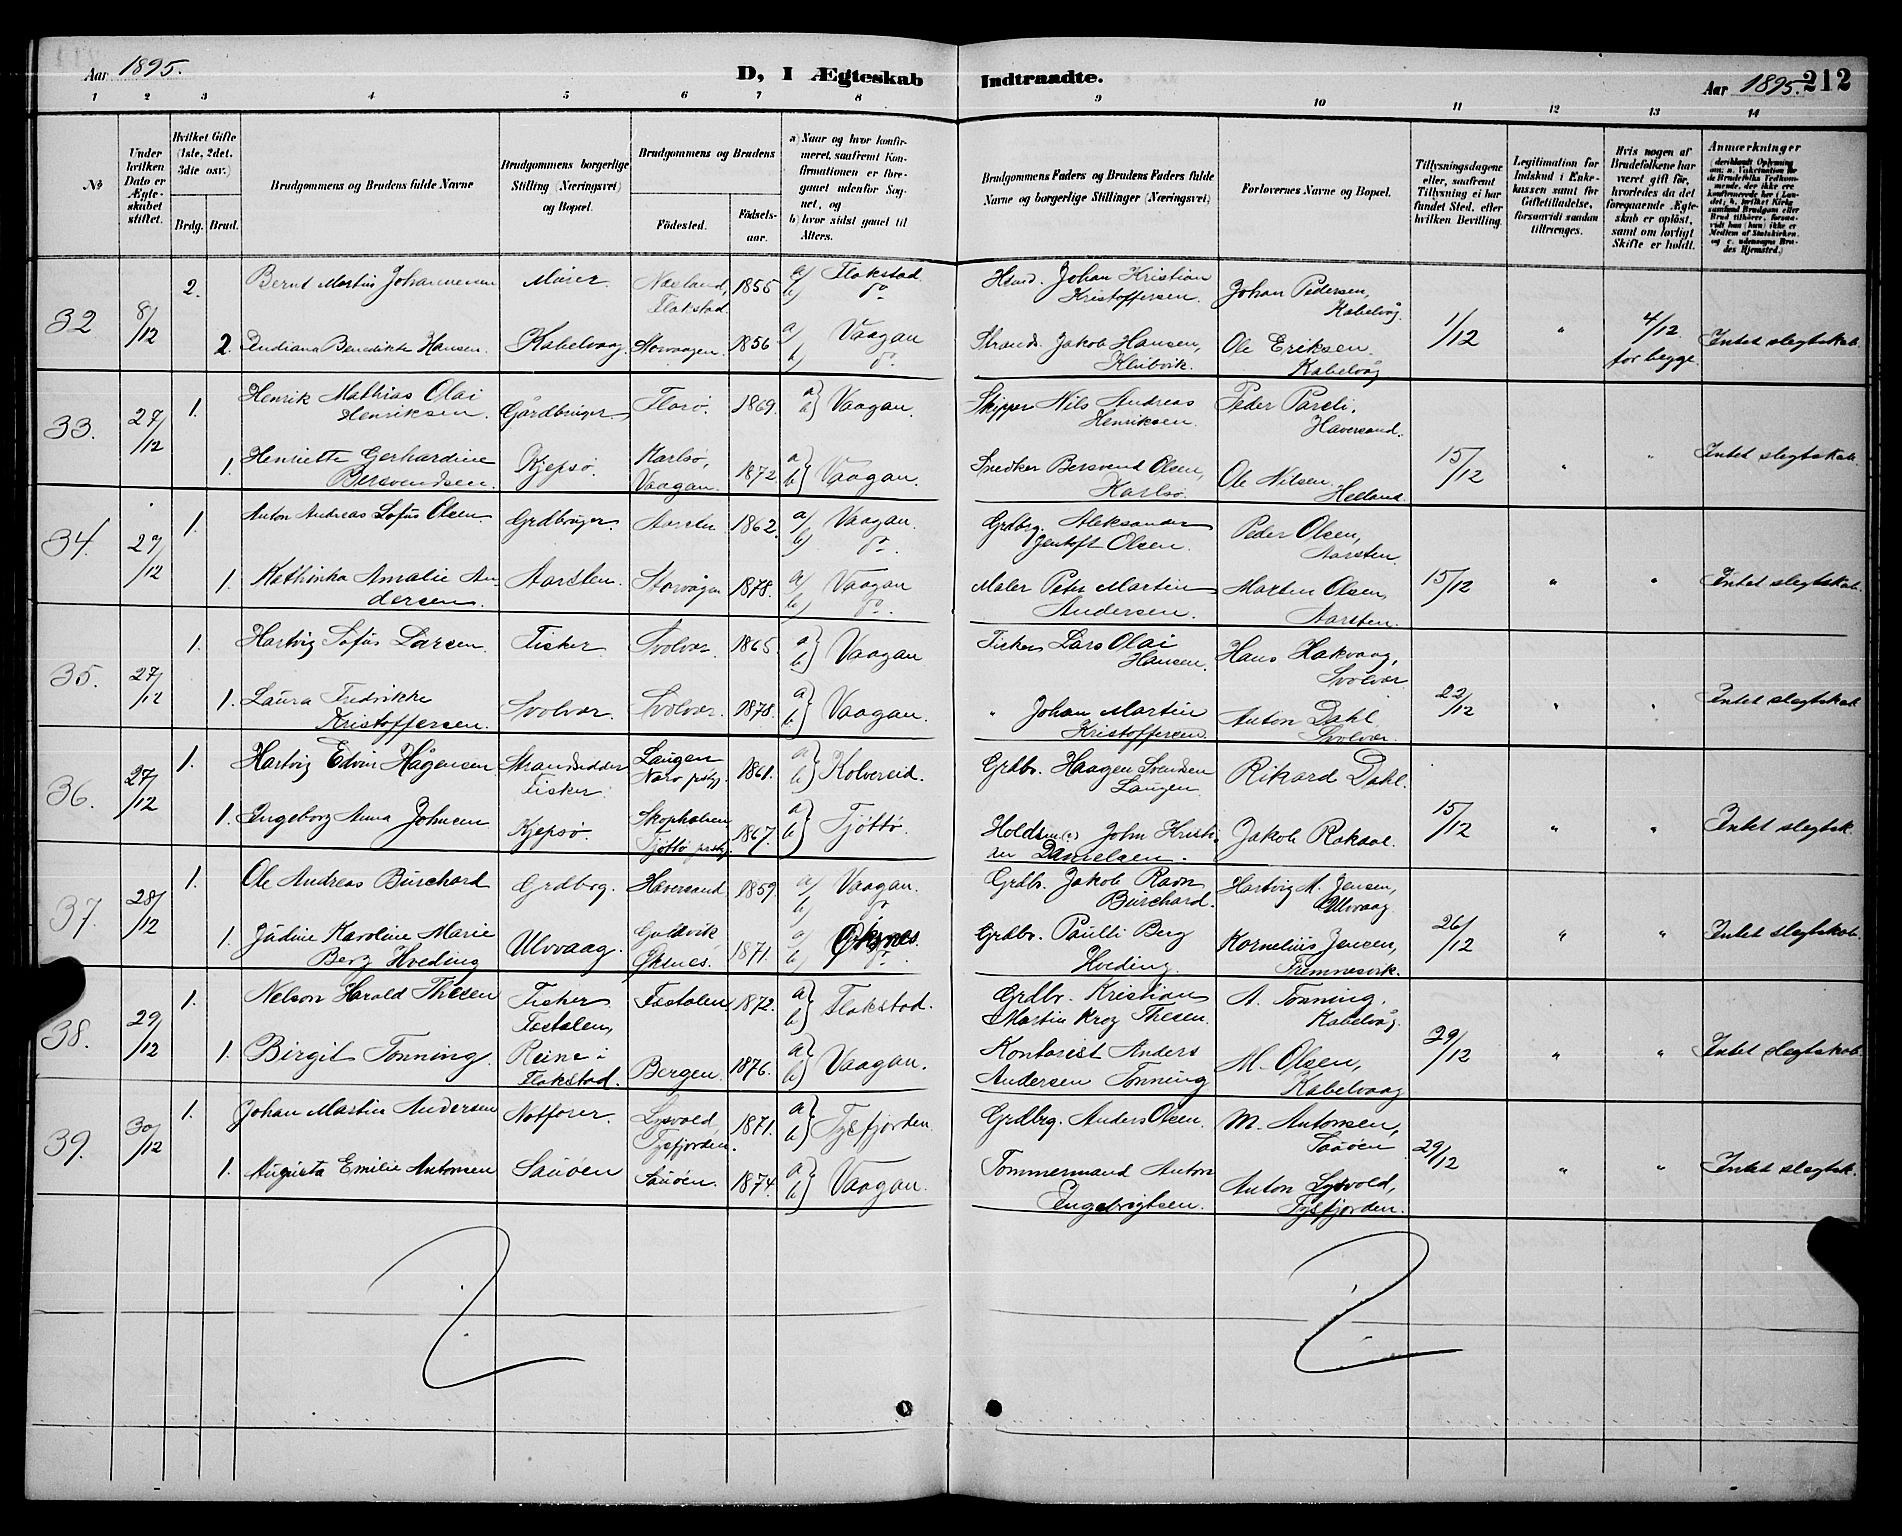 Aar 1895.
D, I Ægteskab
Indtraadte.
Aar 1895.
212
1 2 3 4 5 6 7 8 9 10 11 12 13 14
No
Under hvilken Dato er Ægteskabet stiftet.
Hvilket Gifte (1ste, 2det, 3die osv.)
Brdg. Brud.
Brudgommens og Brudens fulde Navne
Brudgommens borgerlige Stilling (Næringsvei) og Bopæl.
Brudgommens og Brudens
Fødested.
Fødselsaar.
a) Naar og hvor konfirmeret, saafremt Konfirmationen er foregaaet udenfor Sognet, og
b) hvor sidst gaaet til Alters.
Brudgommens Faders og Brudens Faders fulde Navne og borgerlige Stillinger (Næringsvei)
Forlovernes Navne og Bopæl.
Tillysningsdagene eller, saafremt Tillysning ei har fundet Sted, efter hvilken Bevilling.
Legitimation for Indskud i Enkekassen samt for Giftetilladelse, forsaavidt saadan tiltrænges.
Hvis nogen af Brudefolkene har været gift før, hvorledes da det foregaaende Ægteskab er opløst, samt om lovligt Skifte er holdt.
Anmærkninger
32 8/12 2. Bernt Martin Johannesen Murer Næsland, Flakstad. 1855 a) Flakstad b) do. Hmd. Johan Kristian Kristoffersen. Johan Pedersen, Kabelvåg.
2. Andiana Benedikte Hansen. Kabelvaag Storvaagen 1856 a) Vaagan b) do. Strands. Jakob Hansen, Ole Eriksen. Kabelvåg 1/12 " 4/12 for begge. Intet slegtskab.
33. 27/12 1. Henrik Mathias Olai Henriksen. Gårdbruger, Florø. 1869. a) b) Vaagan. Skipper Nils Andreas Henriksen. Peder Pareli, Haversand.
1. Henriette Gerhardine Bersvendsen. Kjepsø. Karlsø, Vaagan. 1872 a) b) Vaagan. Snedker Bersvend Olsen, Karlsø. Ole Nilsen. Helland. 15/12 " " Intet slegtskab.
34. 29/12 1. Anton Andreas Sofus Olsen. Grdbruger. Aarsten 1862. a) Vaagan. b) do. Grdbrg. Aleksander Jentoft Olsen. Peder Olsen, Aarsten
1. Kathinka Amalie Andersen. Aarsten. Storvågen 1878. a) Vaagan b) do. Maler Peter Martin Andersen. Morten Olsen, Aarsten. 15/12 " " Intet slegtskab.
35. 27/12 1. Hartvig Sofus Larsen. Fisker Svolvær. 1865. a) b) Vaagan Fisker Lars Olai Hansen. Hans Hakvaag, Svolvær
1. Laura Fredrikke Kristoffersen. Svolvær. Svolvær. 1878. a) b) Vaagan. " Johan Martin Kristoffersen. Anton Dahl Svolvær. 22/12 " " Intet slegtskab
36. 27/12 1. Hartvig Edvin Hågensen Strandsidder Fisker. Laugen Nærø prstg. 1861. a) b) Kolvereid. Grdbr. Haagen Svendsen Laugen. Rikard Dahl.
1. Ingeborg Anna Johnsen Kjepsø. Skopholmen Tjøttø prstg. 1867. a) b) Tjøttø. John Danielsen. Jakob 15/12 " " Intet slegtsk.
37. 28/12 1. Ole Andreas Burchard Grdbrg. Haversand. 1859 a) Vaagan. b) do. Grdbr. Jakob Ravn Burchard. Hartvig M. Jensen, Ulvvaag.
1. Judine Karoline Marie Berg Hveding Ulvvaag. Øksnes. 1871. a) Øksnes. b) do. Grdbr. Paulli Berg Hveding. Kornelius Jensen, Fremnesvik. 26/12 " " Intet slegtskab.
38. 29/12 1. Nelson Harald Thesen Fisker Fostalen, Fostalen. 1872. a) b) Flakstad. Grdbr. Kristian Martin Krog Thesen. A. Tonning, Kabelvåg.
1. Birgit Tonning. Reine i Flakstad. Bergen. 1876. a) b) Vaagan. Kontorist Anders Andersen Tonning M. Olsen, Kabelvaag 29/12 " " Intet slegtskab.
39. 30/12 1. Johan Martin Andersen Notfører Lysvold, Tysfjorden. 1871. a) b) Tysfjorden. Grdbrg. Anders Olsen. M. Antonsen, Sauøen
1. Augusta Emilie Antonsen Sauøen Sauøen. 1874. a) b) Vaagan. Tømmermand Anton Engebrigtsen. Anton Lysvold, Tysfjorden. 29/12 " " Intet slegtsk.